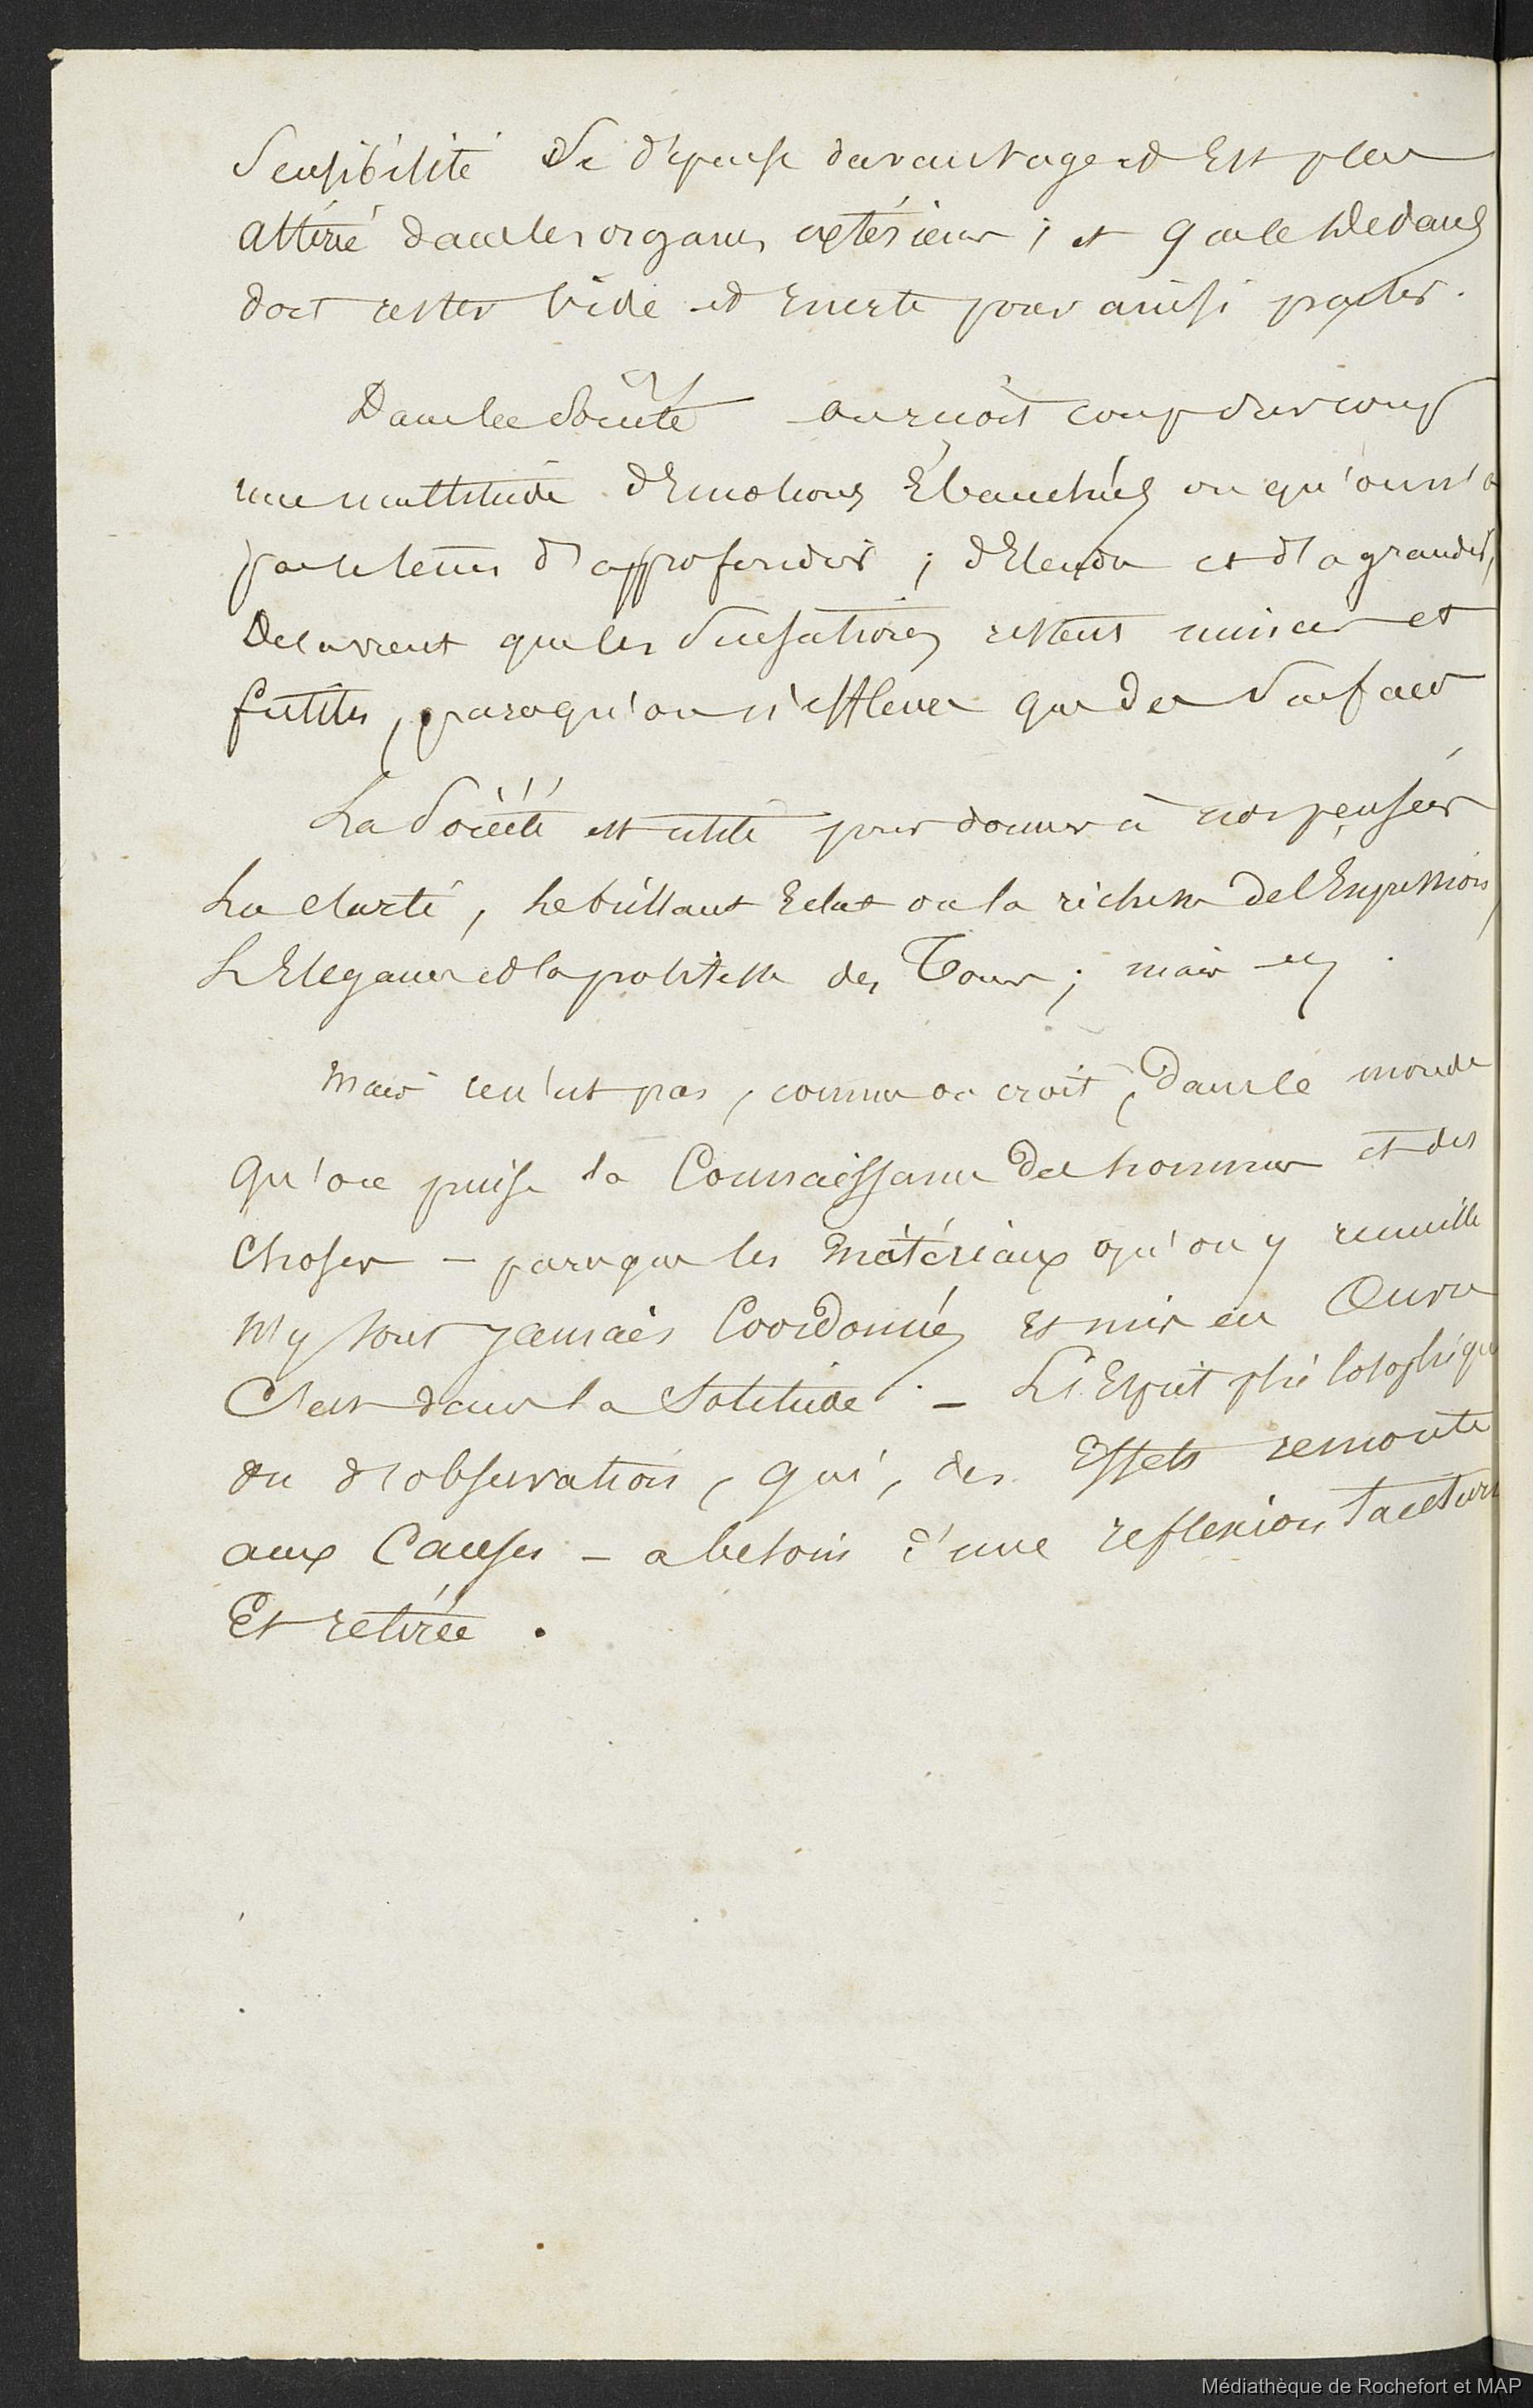 Sensibilité Se dépense davantage et Est plus
attiré dans les organes extérieurs ; et que le Dedans
doit rester Vide et Inerte pour ainsi parler.
Dans la Société on reçoit coup sur coup
une multitude d'Emotions Ebauchées ou qu'on n'a
pas le tems d'approfondir ; d'Etendre et d'agrandir,
De la vient que les Sensations restent minces et
futiles, parce qu'on n'effleure que des Surfaces
La Société est utile pour donner à nos pensées
La clarté, le brillant Eclat ou la richesse de l'Expression,
L'Elegance et la politesse des Tours ; mais
Mais ce n'est pas, comme on croit, dans le monde
Qu'on puise la Connaissance des hommes et des
Choses – parce que les Matériaux qu'on y recueille
N'y sont jamais Coordonnés Et mis en Œuvre
C'est dans la Solitude. – L'Esprit philosophique
ou d'observation, qui, des Effets remonte
aux Causes – a besoin d'une reflexion Taciturne
Et retirée .
Médiathèque de Rochefort et MAP